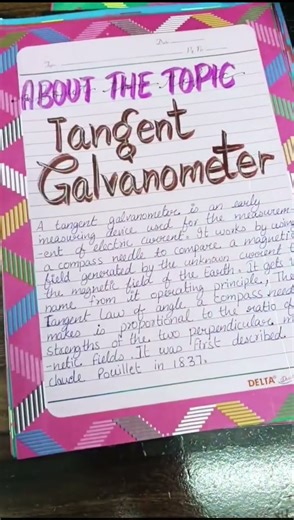 Date
P. No.
ABOUT THE TOPIC
Tangent
Galvanometer
A tangent galvanometer is an early
measuring device used for the measurem-
-ent of electric current. It works by using
a compass needle to compare a magnetic
field generated by the unknown current to
the magnetic field of the Earth. It gets
name from it operating principle, The
Tangent Law of angle a compass needle
makes is proportional to the ratio of
strengths of the two perpendicular
-netic fields. It was first described
claude Pouillet in 1837.
DELTA